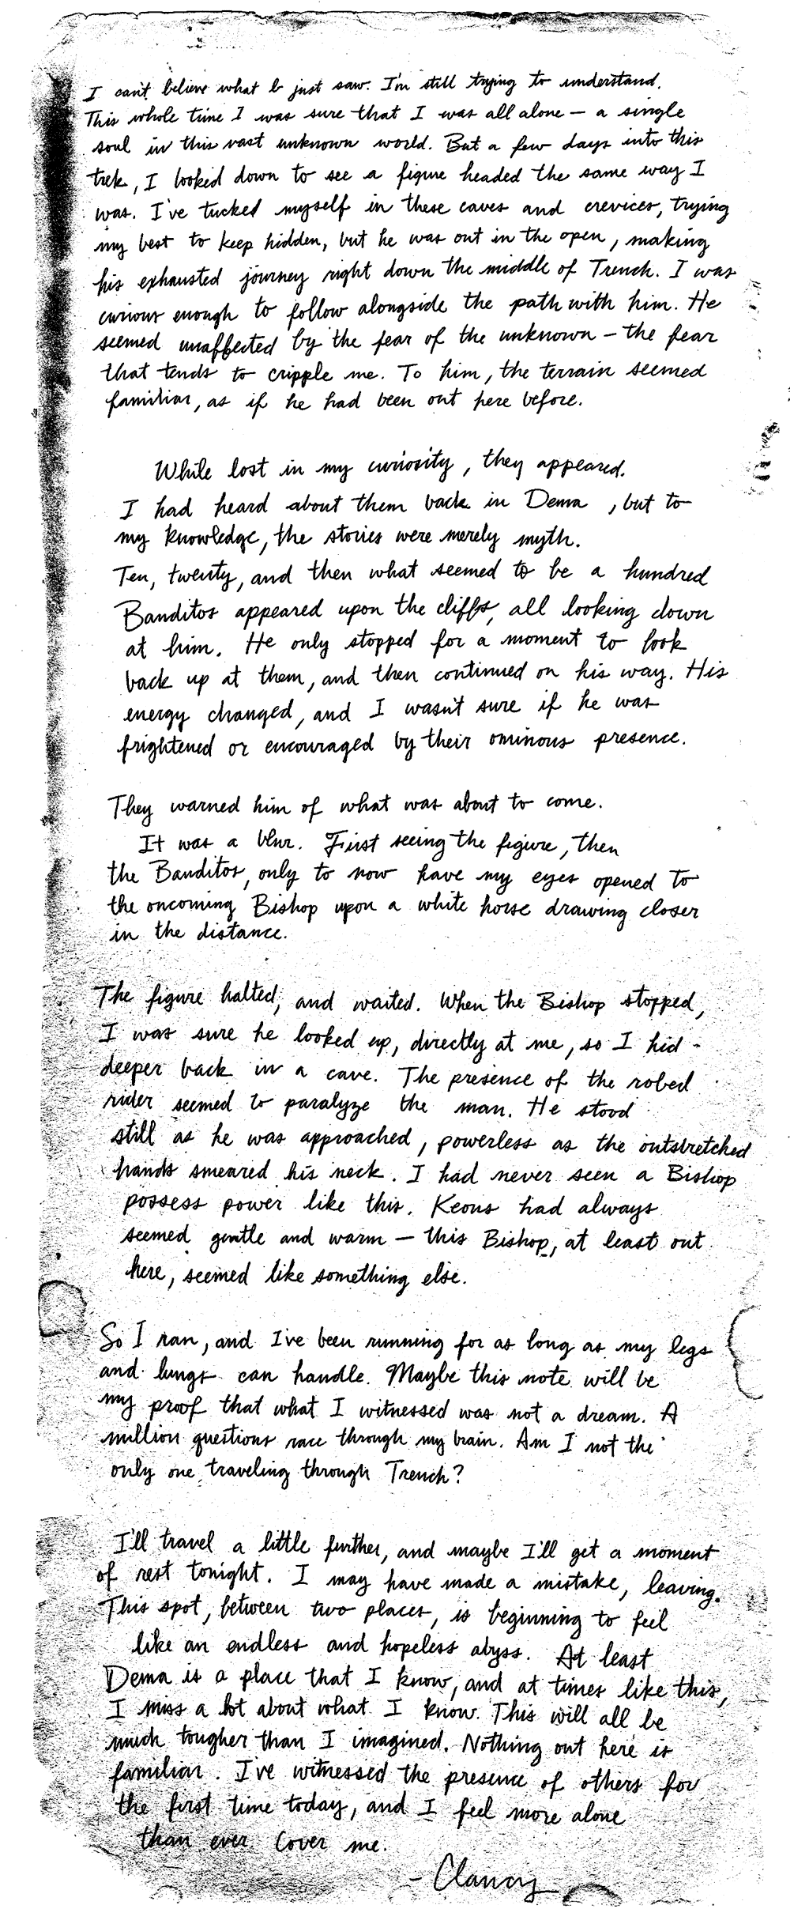 I can't believe what I just saw. I'm still trying to understand.
This whole time I was sure that I was all alone – a single
soul in this vast unknown world. But a few days into this
trek, I looked down to see a figure headed the same way I
was. I've tucked myself in these caves and crevices, trying
my best to keep hidden, but he was out in the open, making
his exhausted journey right down the middle of Trench. I was
curious enough to follow alongside the path with him. He
seemed unaffected by the fear of the unknown – the fear
that tends to cripple me. To him, the terrain seemed
familiar, as if he had been out here before.
While lost in my curiosity, they appeared.
I had heard about them back in Dema, but to
my knowledge, the stories were merely myth.
Ten, twenty, and then what seemed to be a hundred
Banditos appeared upon the cliffs, all looking down
at him. He only stopped for a moment to look
back up at them, and then continued on his way. His
energy changed, and I wasn't sure if he was
frightened or encouraged by their ominous presence.
They warned him of what was about to come.
It was a blur. First seeing the figure, then
the Banditos, only to now have my eyes opened to
the oncoming Bishop upon a white horse drawing closer
in the distance.
The figure halted, and waited. When the Bishop stopped,
I was sure he looked up, directly at me, so I hid
deeper back in a cave. The presence of the robed
rider seemed to paralyze the man. He stood
still as he was approached, powerless as the outstretched
hands smeared his neck. I had never seen a Bishop
possess power like this. Keons had always
seemed gentle and warm – this Bishop, at least out
here, seemed like something else.
So I ran, and I've been running for as long as my legs
and lungs can handle. Maybe this note will be
my proof that what I witnessed was not a dream. A
million questions race through my brain. Am I not the
only one traveling through Trench?
I'll travel a little further, and maybe I'll get a moment
of rest tonight. I may have made a mistake, leaving.
This spot, between two places, is beginning to feel
like an endless and hopeless abyss. At least
Dema is a place that I know, and at times like this,
I miss a lot about what I know. This will all be
much tougher than I imagined. Nothing out here is
familiar. I've witnessed the presence of others for
the first time today, and I feel more alone
than ever. Cover me.
- Clancy